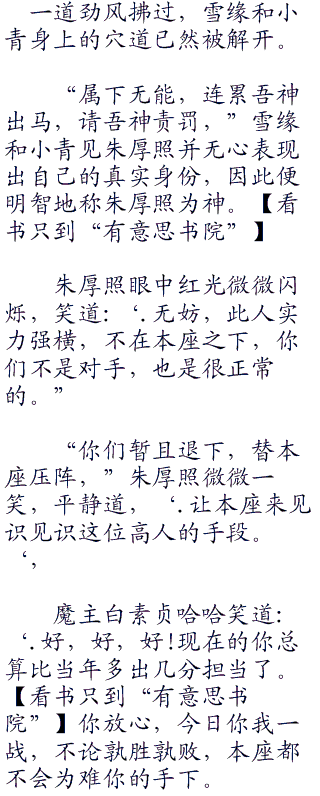 一道劲风拂过，雪缘和小
青身上的穴道已然被解开。
“属下无能，连累吾神
出马，请吾神责罚，”雪缘
和小青见朱厚照并无心表现
出自己的真实身份，因此便
明智地称朱厚照为神。【看
书只到“有意思书院”】
朱厚照眼中红光微微闪
烁，笑道：‘.无妨，此人实
力强横，不在本座之下，你
们不是对手，也是很正常
的。”
“你们暂且退下，替本
座压阵，”朱厚照微微一
笑，平静道，‘.让本座来见
识见识这位高人的手段。
‘，
魔主白素贞哈哈笑道：
‘.好，好，好!现在的你总
算比当年多出几分担当了。
【看书只到“有意思书
院”】你放心，今日你我一
战，不论孰胜孰败，本座都
不会为难你的手下。